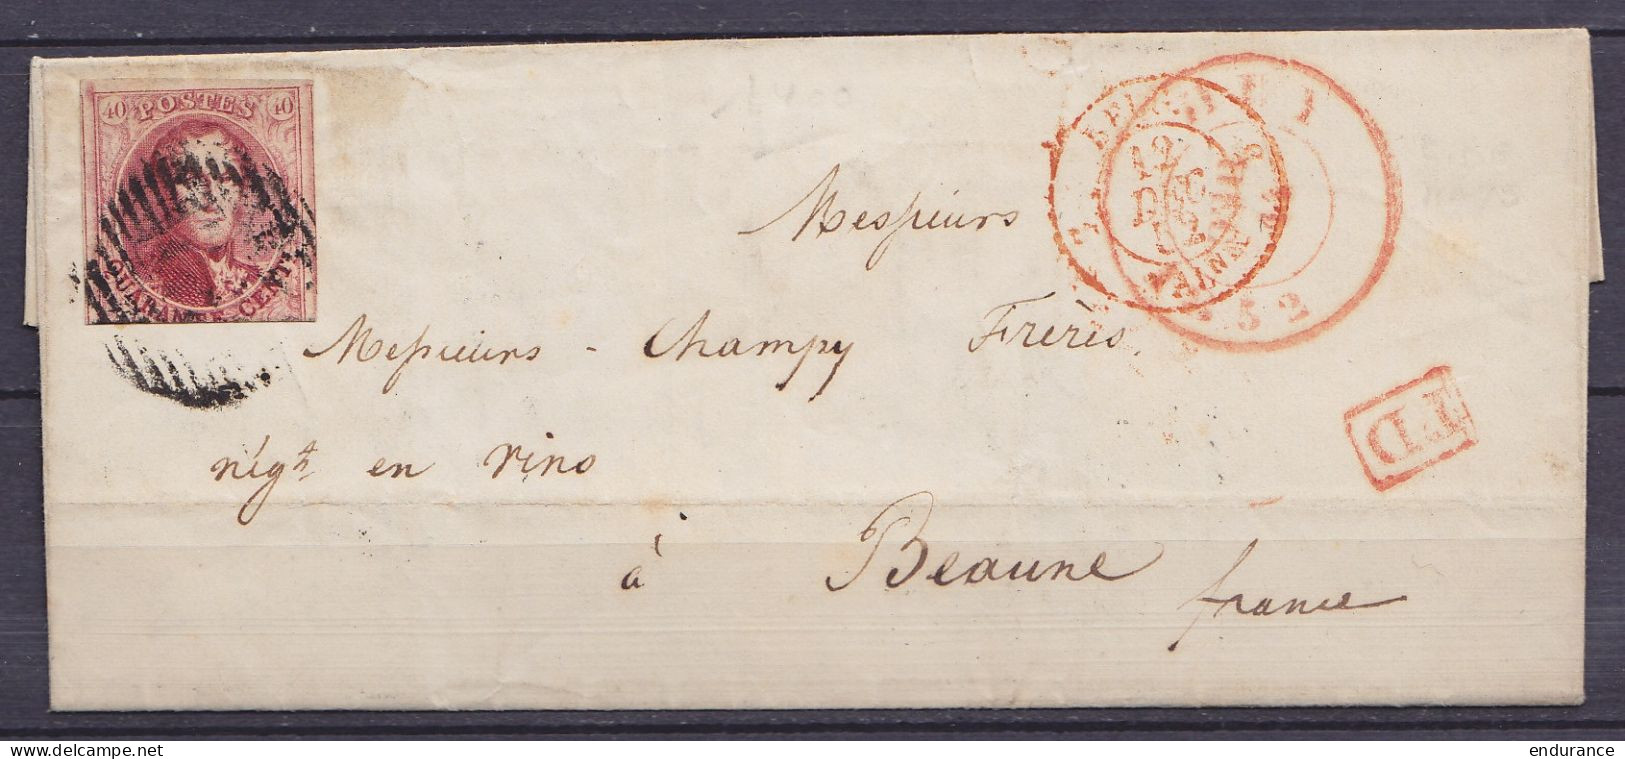 40 POSTES 40
QUARANTE CENTS
BELG.
12
DEC
52
VALENNES
52
PD
Messieurs
Messieurs - Champy Frères.
négt en vins
à Beaune
france
www.delcampe.net
endurance